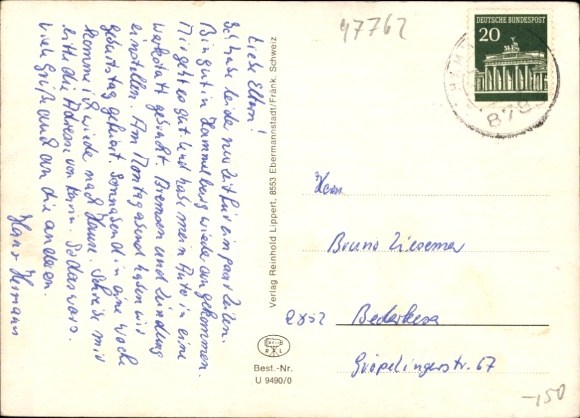 Liebe Eltern!
Ich habe leider nur Zeit für ein paar Zeilen.
Bin gut in Hammelburg wieder angekommen.
Mir geht es gut. Und hab mein Auto in eine
Werkstatt gebracht. Bremsen und Zündung
einstellen. Am Montagabend haben wir
Geburtstag gefeiert. Sonnabend in eine Woche
komme ich wieder nach Hause. Schreib mir
bitte die Adresse von Karin. So das wars.
viele Grüße auch an die anderen.
Hans Hermann
Verlag Reinhold Lippert, 8553 Ebermannstadt/Fränk. Schweiz
Best.-Nr.
U 9490/0
47762
DEUTSCHE BUNDESPOST
20
878
Herrn
Bruno Ziesemer
2852 Bederkesa
Gröpelingerstr. 67
-,50